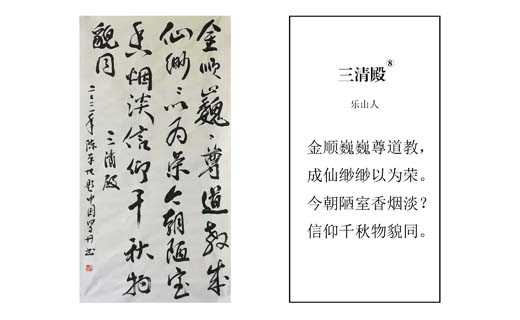 金顺巍々尊道教成
仙缈々以为荣今朝陋室
香烟淡信仰千秋物
貌同
三清殿
二〇二一年
三清殿⑧
乐山人
金顺巍巍尊道教,
成仙缈缈以为荣。
今朝陋室香烟淡?
信仰千秋物貌同。